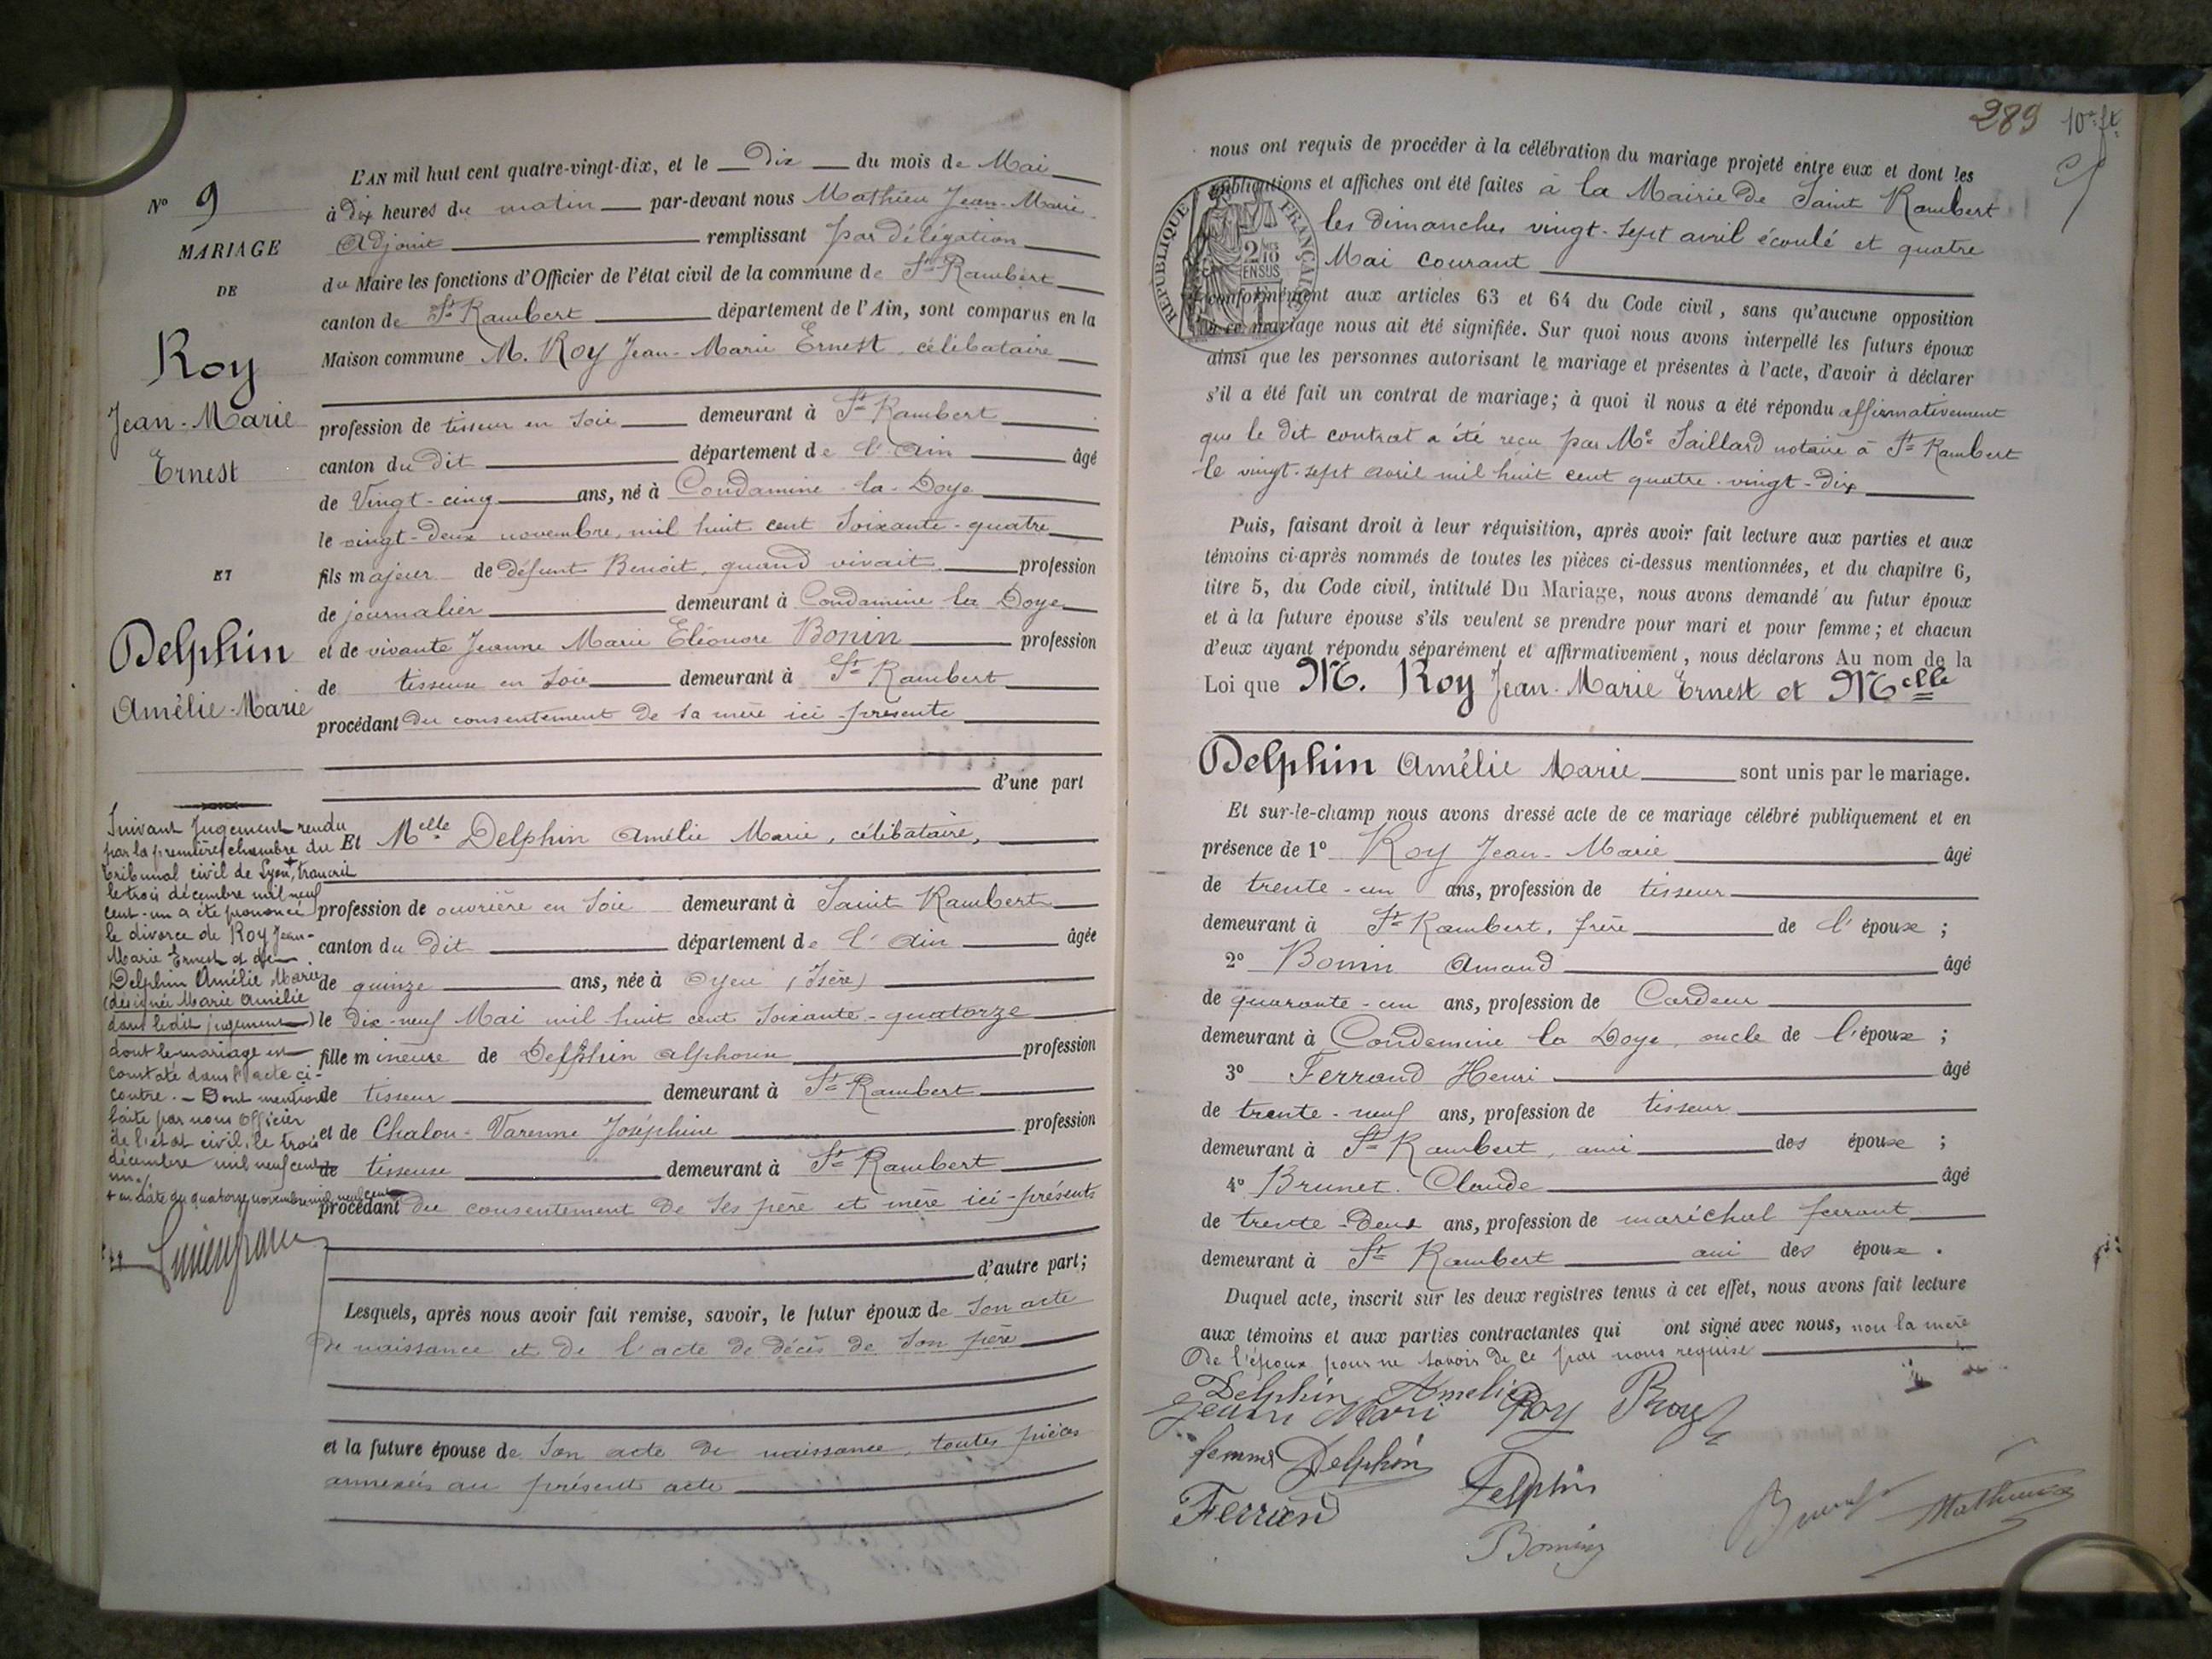 N° 9
MARIAGE
DE
Roy
Jean-Marie
Ernest
ET
Delphin
Amélie-Marie
Suivant jugement rendu
par la première chambre du
tribunal civil de Lyon, + transcrit
le trois décembre mil neuf
cent-un a été prononcé
le divorce de Roy Jean-
Marie Ernest et de
Delphin Amélie Marie
(désignée Marie Amélie
dans ledit jugement)
dont le mariage est
constaté dans l'acte ci-
contre. - Dont mention
faite par nous Officier
de l'état civil, le trois
décembre mil neuf cent
un
+ en date du quatorze novembre mil neuf cent
L'AN mil huit cent quatre-vingt-dix, et le Dix du mois de Mai
à dix heures du matin par-devant nous Mathieu Jean-Marie
Adjoint remplissant par délégation
du Maire les fonctions d'Officier de l'état civil de la commune de St Rambert
canton de St Rambert département de l'Ain, sont comparus en la
Maison commune M. Roy Jean-Marie Ernest, célibataire
profession de tisseur en soie demeurant à St Rambert
canton du dit département de l'Ain âgé
de Vingt-cinq ans, né à Condamine-la-Doye
le vingt-deux novembre, mil huit cent soixante-quatre
fils majeur de défunt Benoit, quand vivait profession
de journalier demeurant à Condamine la Doye
et de vivante Jeanne Marie Eléonore Bonin profession
de tisseuse en soie demeurant à St Rambert
procédant du consentement de sa mère ici-présente
d'une part
Et Melle Delphin Amélie Marie, célibataire,
profession de ouvrière en soie demeurant à Saint Rambert
canton du dit département de l'Ain âgée
de quinze ans, née à Oyeu (Isère)
le dix-neuf Mai mil huit cent soixante-quatorze
fille mineure de Delphin Alphonse profession
de tisseur demeurant à St Rambert
et de Chalon-Varenne Joséphine profession
de tisseuse demeurant à St Rambert
procédant du consentement de ses père et mère ici-présents
d'autre part;
Lesquels, après nous avoir fait remise, savoir, le futur époux de son acte
de naissance et de l'acte de décès de son père
et la future épouse de son acte de naissance, toutes pièces
annexées au présent acte
289 10e ft
nous ont requis de procéder à la célébration du mariage projeté entre eux et dont les
publications et affiches ont été faites à la Mairie de Saint Rambert
les dimanches vingt-sept avril écoulé et quatre
Mai courant
RÉPUBLIQUE FRANÇAISE
2/10 EN SUS
conformément aux articles 63 et 64 du Code civil, sans qu'aucune opposition
à ce mariage nous ait été signifiée. Sur quoi nous avons interpellé les futurs époux
ainsi que les personnes autorisant le mariage et présentes à l'acte, d'avoir à déclarer
s'il a été fait un contrat de mariage; à quoi il nous a été répondu affirmativement
que le dit contrat a été reçu par Me Saillard notaire à St Rambert
le vingt-sept avril mil huit cent quatre-vingt-dix
Puis, faisant droit à leur réquisition, après avoir fait lecture aux parties et aux
témoins ci-après nommés de toutes les pièces ci-dessus mentionnées, et du chapitre 6,
titre 5, du Code civil, intitulé Du Mariage, nous avons demandé au futur époux
et à la future épouse s'ils veulent se prendre pour mari et pour femme; et chacun
d'eux ayant répondu séparément et affirmativement, nous déclarons Au nom de la
Loi que M. Roy Jean-Marie Ernest et Melle
Delphin Amélie Marie sont unis par le mariage.
Et sur-le-champ nous avons dressé acte de ce mariage célébré publiquement et en
présence de 1° Roy Jean-Marie âgé
de trente-un ans, profession de tisseur
demeurant à St Rambert, frère de l'époux;
2° Bonin Amand âgé
de quarante-un ans, profession de Cardeur
demeurant à Condamine la Doye, oncle de l'époux;
3° Ferrand Henri âgé
de trente-neuf ans, profession de tisseur
demeurant à St Rambert, ami des époux;
4° Brunet Claude âgé
de trente-deux ans, profession de maréchal ferrant
demeurant à St Rambert ami des époux.
Duquel acte, inscrit sur les deux registres tenus à cet effet, nous avons fait lecture
aux témoins et aux parties contractantes qui ont signé avec nous, non la mère
de l'époux pour ne savoir de ce par nous requise
Delphin Amelie
Jeann Mari Roy Roy
femme Delphin Delphin
Ferrand Bonin Brunet Mathieu